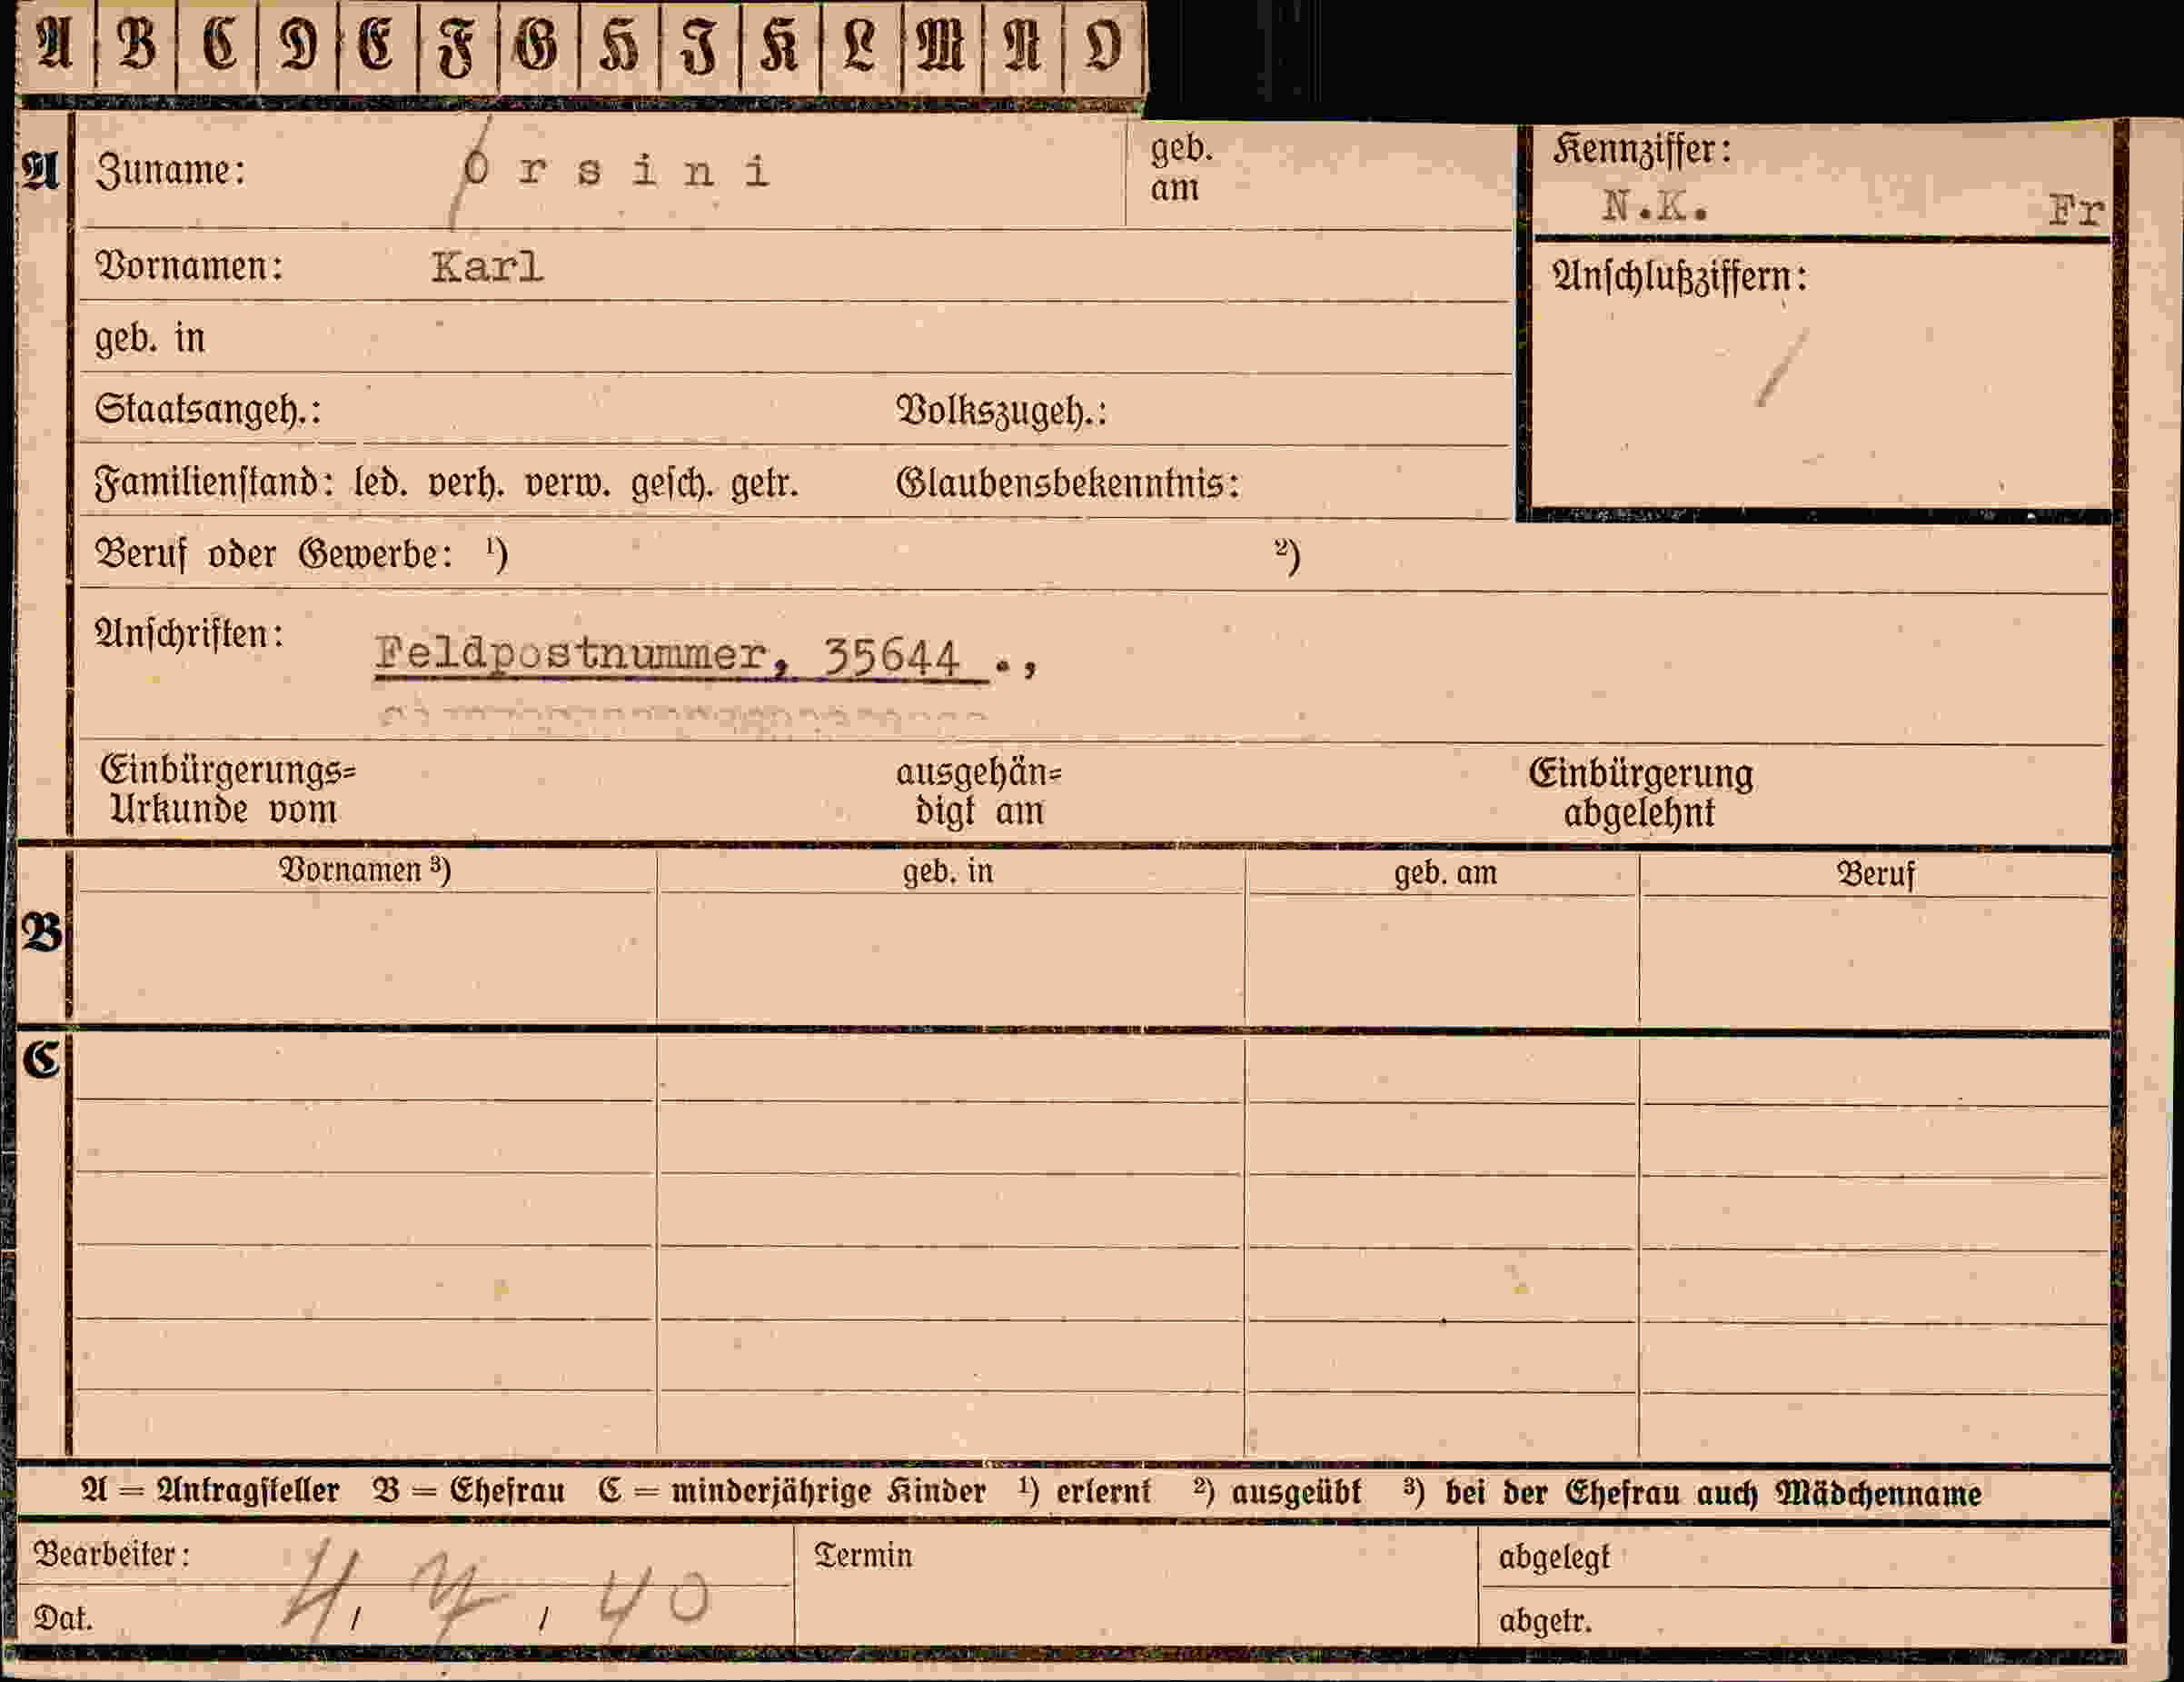 A B C D E F G H J K L M N O
A Zuname: Orsini geb. am
Kennziffer:
N.K. Fr
Vornamen: Karl
Anschlußziffern:
geb. in
Staatsangeh.: Volkszugeh.:
Familienstand: led. verh. verw. gesch. getr. Glaubensbekenntnis:
Beruf oder Gewerbe: ¹) ²)
Anschriften: Feldpostnummer, 35644 .,
Einbürgerungs= ausgehän= Einbürgerung
Urkunde vom digt am abgelehnt
Vornamen ³) geb. in geb. am Beruf
B
C
A = Antragsteller B = Ehefrau C = minderjährige Kinder ¹) erlernt ²) ausgeübt ³) bei der Ehefrau auch Mädchenname
Bearbeiter: Termin abgelegt
Dat. / / 40 abgetr.